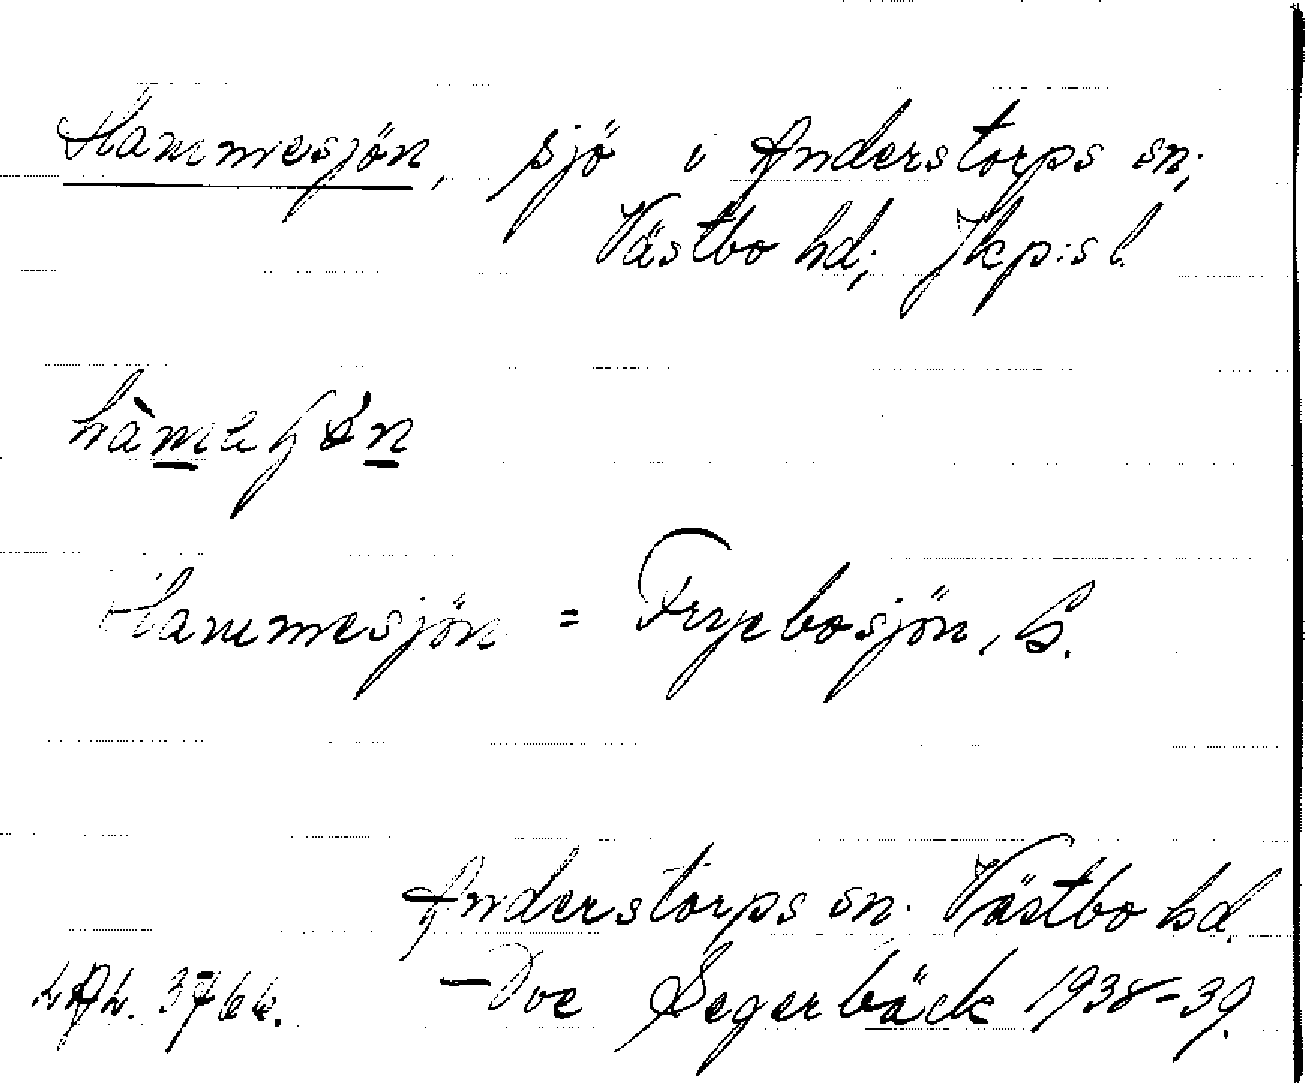 Hammesjön, sjö i Anderstorps sn;
Västbo hd; Jkp:s l.
Hammesjön = Frycbosjön, S.
Anderstorps sn. Västbo hd.
3766. Segerbäck 1938-39.